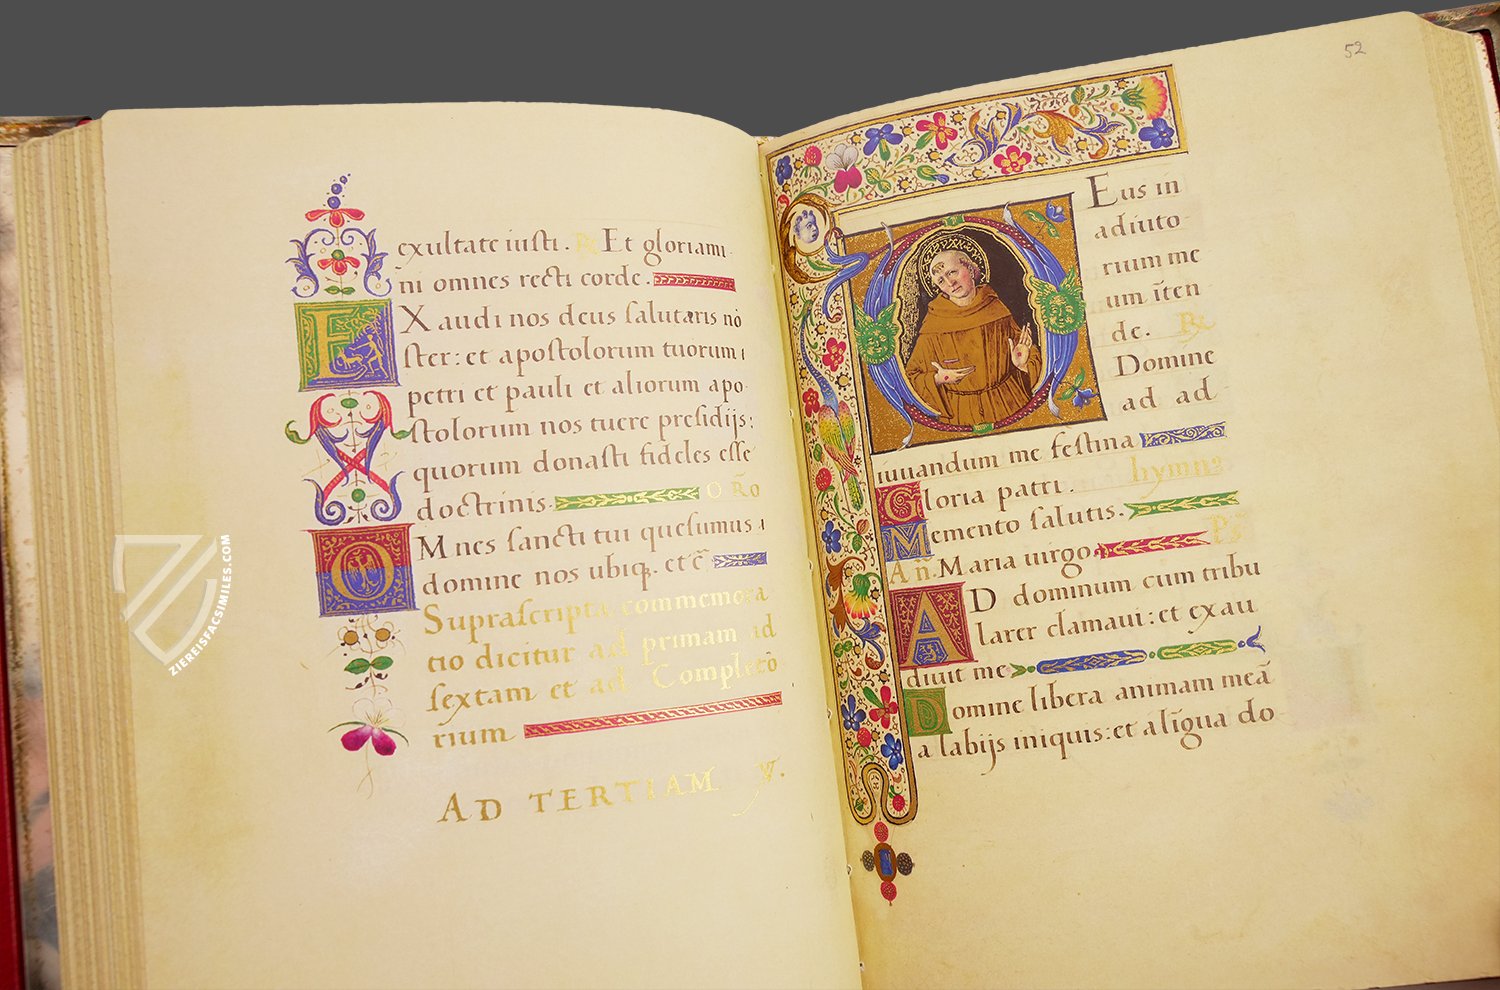 exultate iusti. R Et gloriami
ni omnes recti corde.
EXaudi nos deus salutaris nō
ster: et apostolorum tuorum
petri et pauli et aliorum apo
stolorum nos tuere presidijs:
quorum donasti fideles esse
doctrinis. O Rō
OMnes sancti tui quesumus
domine nos ubiq. etc̄
Suprascripta commemora
tio dicitur ad primam ad
sextam et ad Completo
rium
AD TERTIAM V.
52
DEus in
adiuto
rium me
um īten
de. R
Domine
ad ad
iuuandum me festina
Gloria patri. hymnꝰ
Memento salutis.
An̄. Maria uirgo Ps
AD dominum cum tribu
larer clamaui: et exau
diuit me
Domine libera animam meā
a labijs iniquis: et a līgua do
ZIEREISFACSIMILES.COM